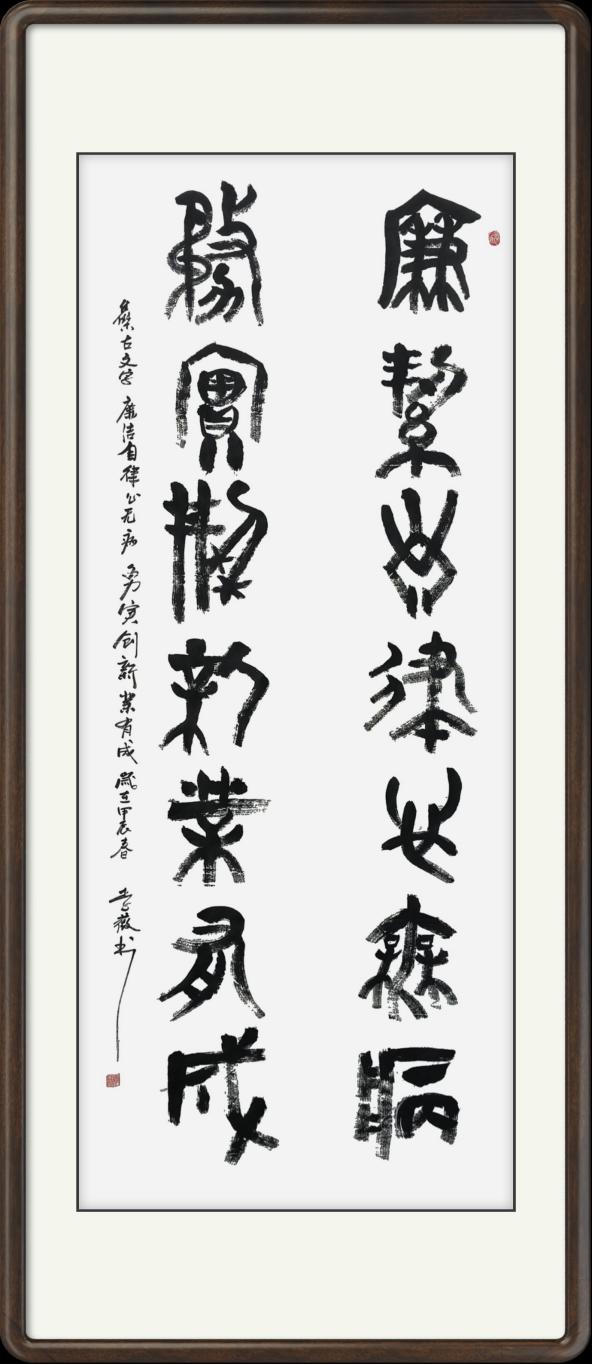 廉絜自律必無病
務實創新業有成
集古文字 廉洁自律必无病 务实创新业有成 岁在甲辰春 书